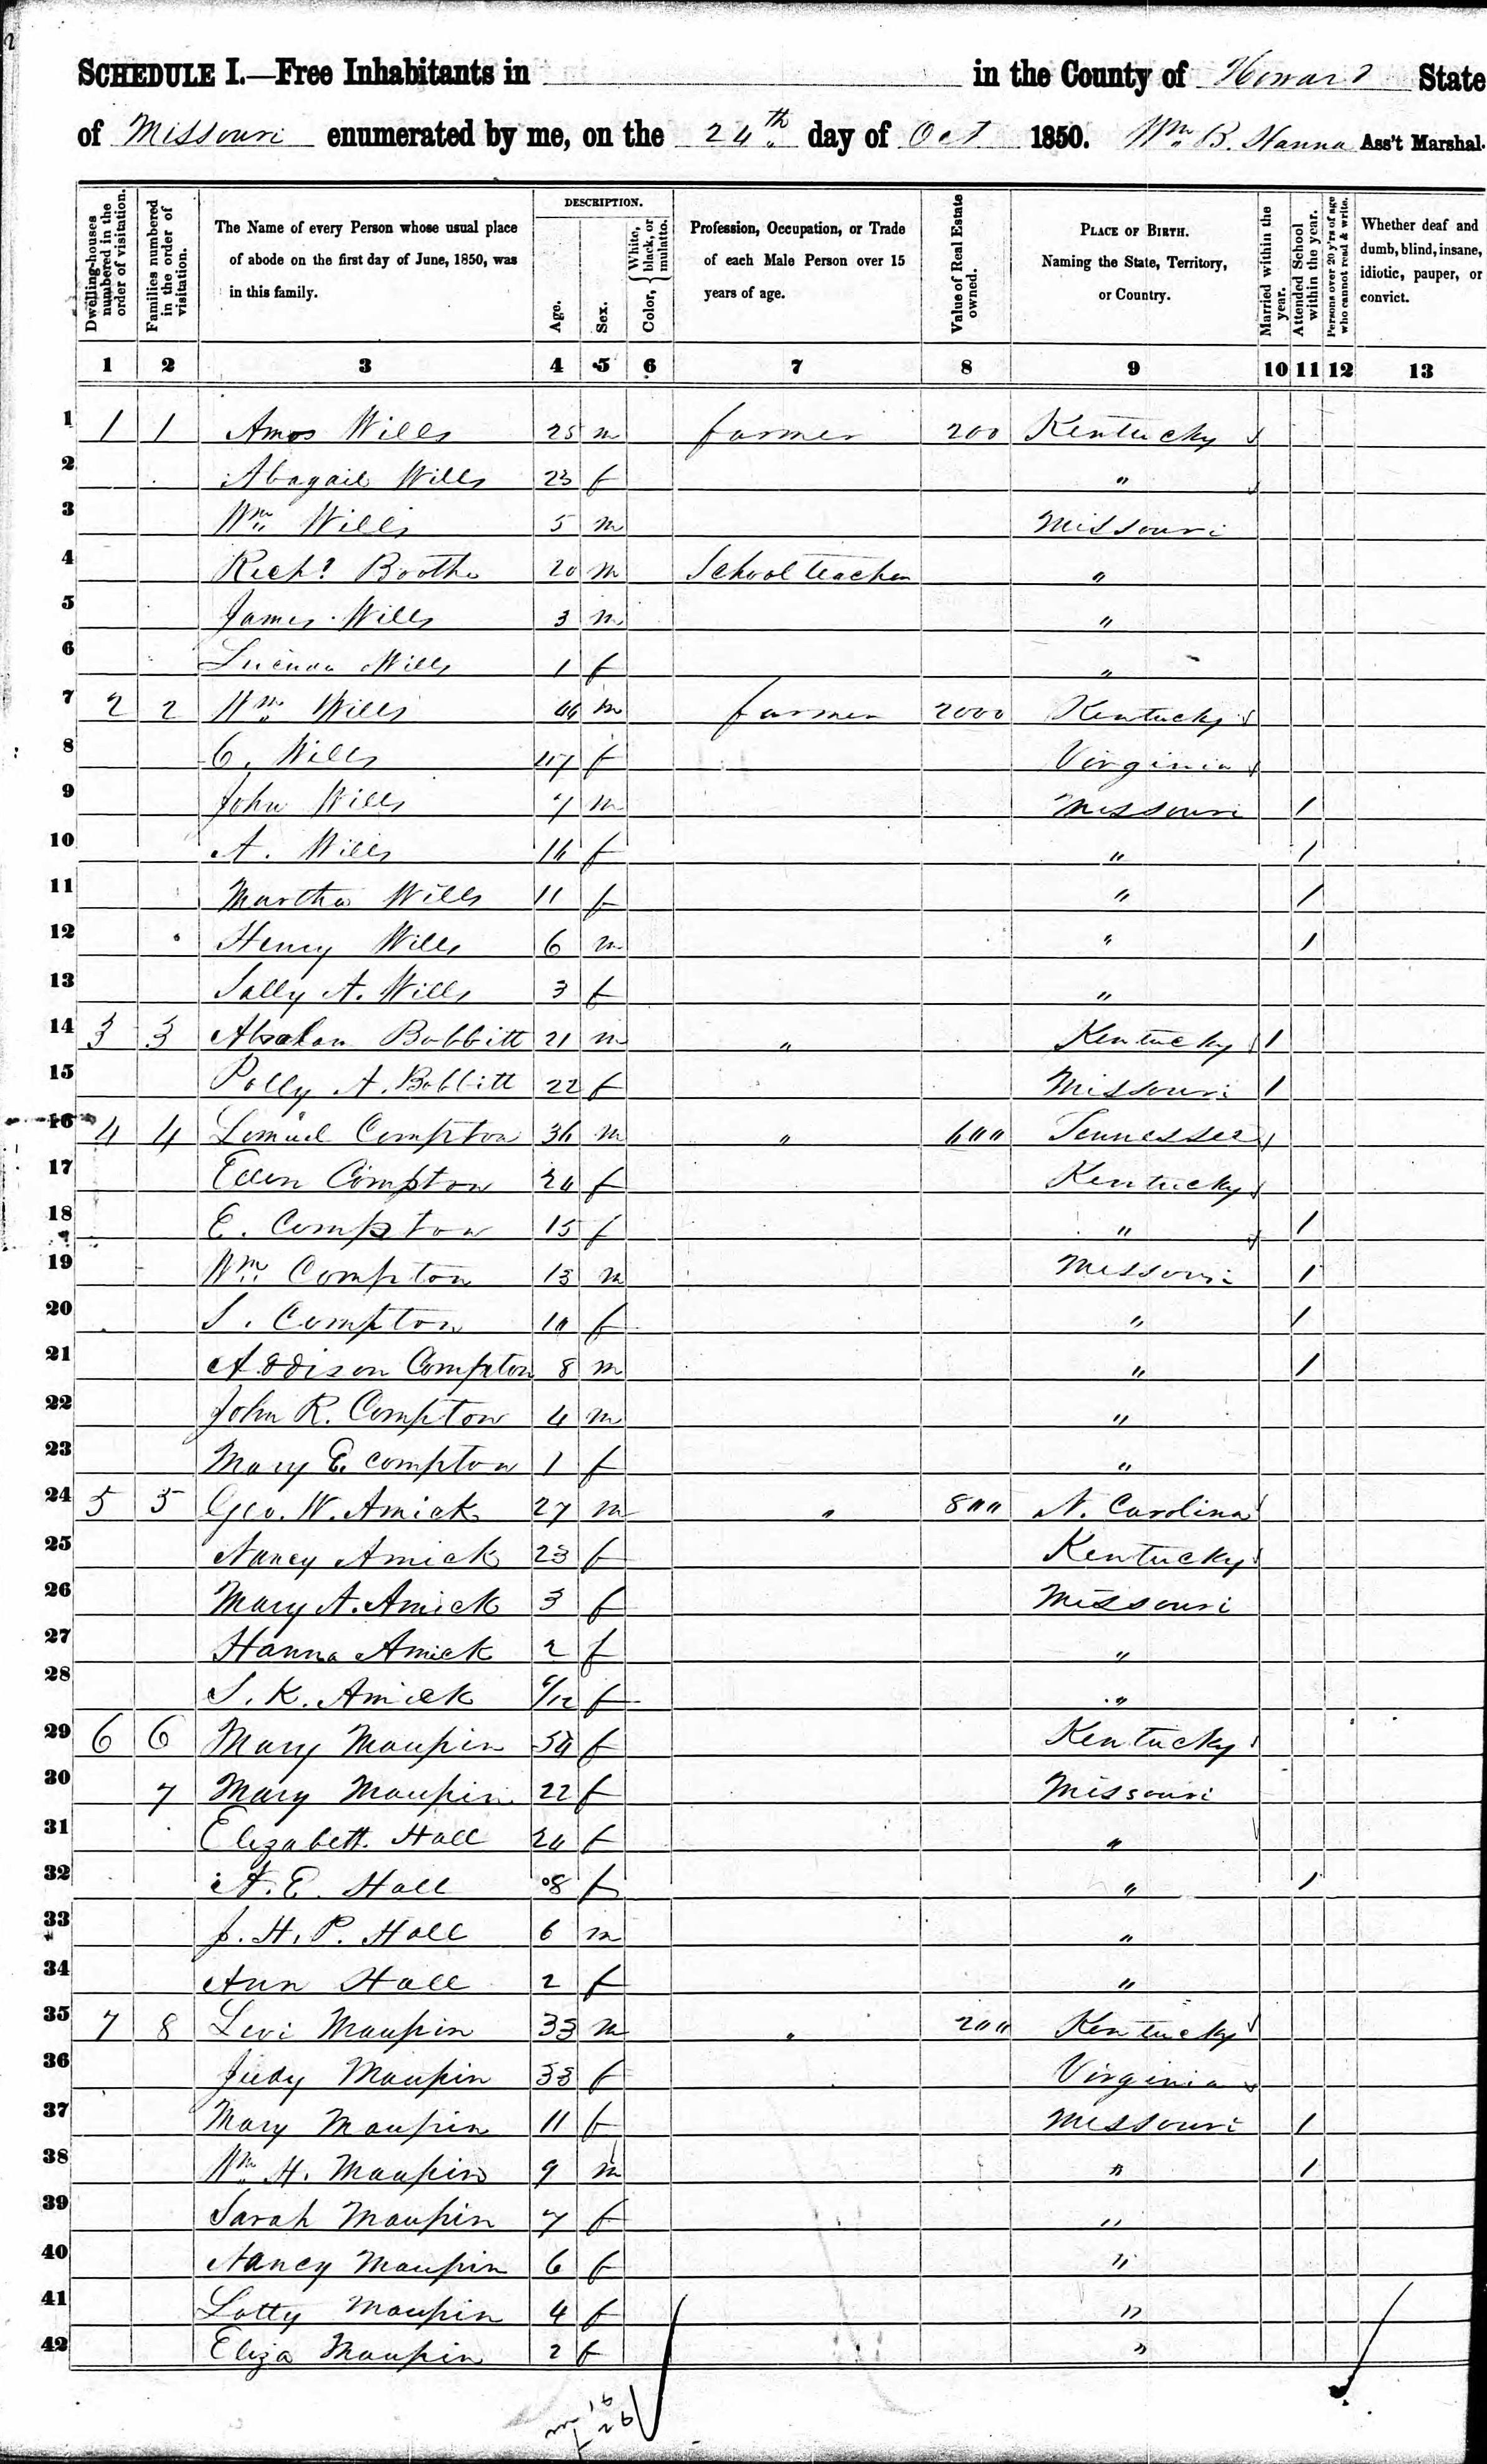 2
SCHEDULE I.—Free Inhabitants in in the County of Howard State
of Missouri enumerated by me, on the 24th day of Oct 1850. Wm B. Hanna Ass't Marshal.
Dwelling-houses numbered in the order of visitation.
Families numbered in the order of visitation.
The Name of every Person whose usual place of abode on the first day of June, 1850, was in this family.
DESCRIPTION.
Age.
Sex.
Color, { White, black, or mulatto.
Profession, Occupation, or Trade of each Male Person over 15 years of age.
Value of Real Estate owned.
PLACE OF BIRTH. Naming the State, Territory, or Country.
Married within the year.
Attended School within the year.
Persons over 20 y'rs of age who cannot read & write.
Whether deaf and dumb, blind, insane, idiotic, pauper, or convict.
1 2 3 4 5 6 7 8 9 10 11 12 13
1 1 1 Amos Wills 25 m farmer 200 Kentucky
2 Abagail Wills 23 f "
3 Wm Wills 5 m Missouri
4 Richd Boothe 20 m School teacher "
5 James Wills 3 m "
6 Wills 1 f "
7 2 2 Wm Wills 46 m farmer 2000 Kentucky
8 C. Wills 47 f Virginia
9 John Wills 7 m Missouri 1
10 A. Wills 14 f " 1
11 Martha Wills 11 f " 1
12 Henry Wills 6 m " 1
13 Sally A. Wills 3 f "
14 3 3 Absolan Bobbitt 21 m " Kentucky 1
15 Polly A. Bobbitt 22 f Missouri 1
16 4 4 Lemuel Compton 36 m " 600 Tennessee
17 Ellen Compton f Kentucky
18 E. Compton 15 f " 1
19 Wm Compton 13 m Missouri 1
20 S. Compton 10 f " 1
21 Addison Compton 8 m " 1
22 John R. Compton 4 m "
23 Mary E. Compton 1 f "
24 5 5 Geo. W. Amick 27 m " 800 N. Carolina
25 Nancy Amick 23 f Kentucky
26 Mary A. Amick 3 f Missouri
27 Hanna Amick 2 f "
28 S. K. Amick 6/12 f "
29 6 6 Mary Maupin f Kentucky
30 7 Mary Maupin 22 f Missouri
31 Elizabeth Hall f "
32 A. E. Hall 8 f " 1
33 J. H. P. Hall 6 m "
34 Ann Hall 2 f "
35 7 8 Levi Maupin 33 m " 200 Kentucky
36 Judy Maupin 33 f Virginia
37 Mary Maupin 11 f Missouri 1
38 Wm H. Maupin 9 m " 1
39 Sarah Maupin 7 f "
40 Nancy Maupin 6 f "
41 Lotty Maupin 4 f "
42 Eliza Maupin 2 f "
m 16
f 26